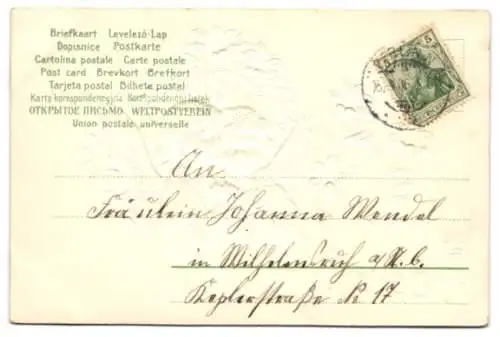 Briefkaart Levelező-Lap
Dopisnice Postkarte
Cartolina postale Carte postale
Post card Brevkort Brefkort
Tarjeta postal Bilhete postal
Karta korespondencyjna Korespondenční lístek
ОТКРЫТОЕ ПИСЬМО. WELTPOSTVEREIN
Union postale universelle
5 5
An
Fräulein Johanna Wendel
in Wilhelmsruh a/N.b.
Keplerstraße № 17